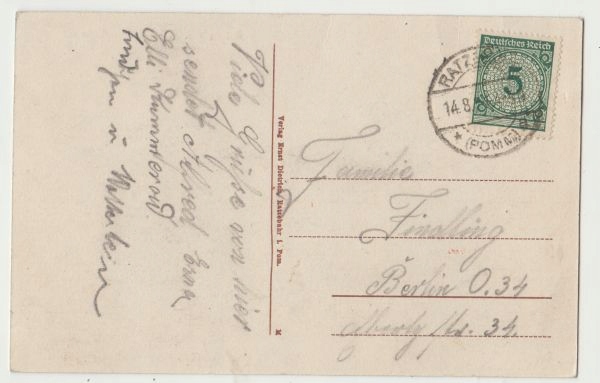 Viele Grüße von hier
sendet Alfred Erna
Elli Kummerow
Verlag Ernst Dietrich, Ratzebuhr i. Pom.
M
Deutsches Reich
5
RATZ
14.8
(POMM)
Familie
Findling
Berlin O. 34
Nr. 34